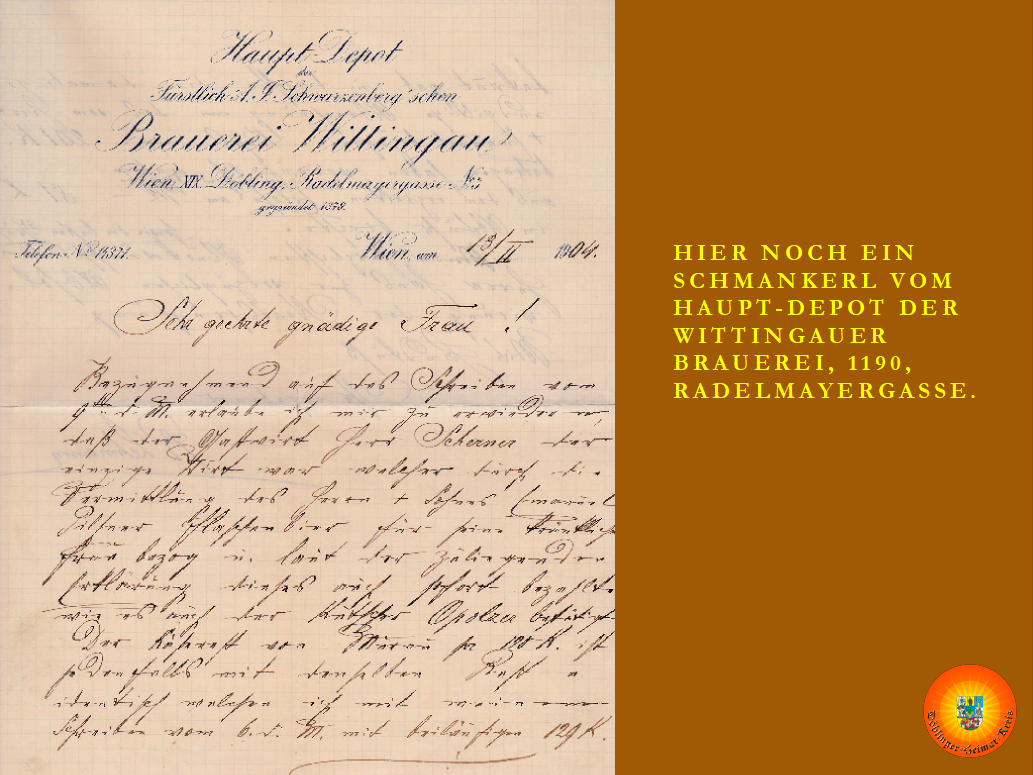 Haupt-Depot
der
Fürstlich A. J. Schwarzenberg'schen
Brauerei Wittingau
Wien, XIX. Döbling, Radelmayergasse No 5
gegründet 1878.
Telefon No 14371.
Wien, am 13/II 1904.
Sehr geehrte gnädige Frau !
Bezugnehmend auf das Schreiben vom
9ten d. M. erlaube ich mir zu erwiedern,
daß der Gastwirt Herr Scherner der
einzige Wirt war welcher durch die
Vermittlung des Herrn Sohnes Emanuel
Pilsner Flaschenbier für seine kränkliche
Frau bezog u. laut der zuliegenden
Erklärung dieses auch sofort bezahlte
wie es auch der Kutscher Opolzer bestätigt
Der von pr K. ist
jedenfalls mit denselben Rest
identisch welchen ich mit meinem
Schreiben vom 6. d. M. mit beiläufigen 129 K.
HIER NOCH EIN
SCHMANKERL VOM
HAUPT-DEPOT DER
WITTINGAUER
BRAUEREI, 1190,
RADELMAYERGASSE.
Döblinger-Heimat-Kreis